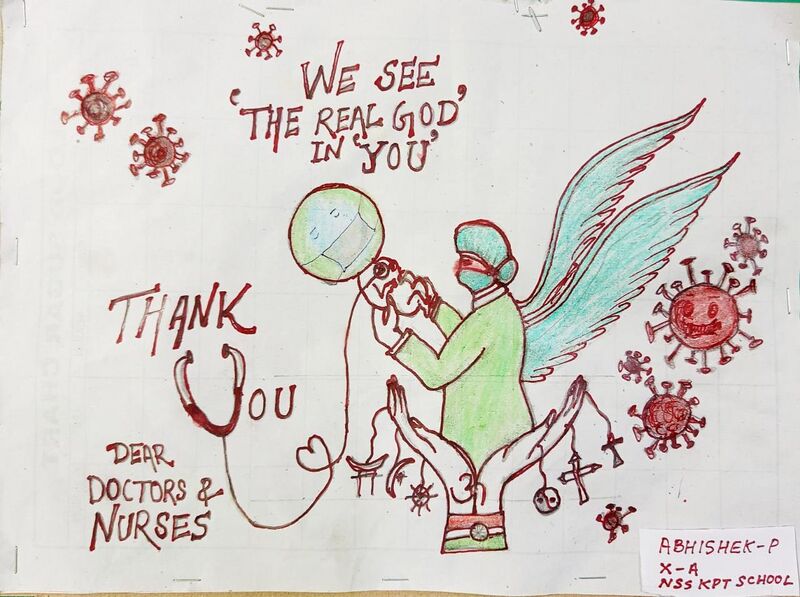 WE SEE
'THE REAL GOD'
IN 'YOU'
THANK
YOU
DEAR
DOCTORS &
NURSES
ABHISHEK-P
X-A
NSS KPT SCHOOL